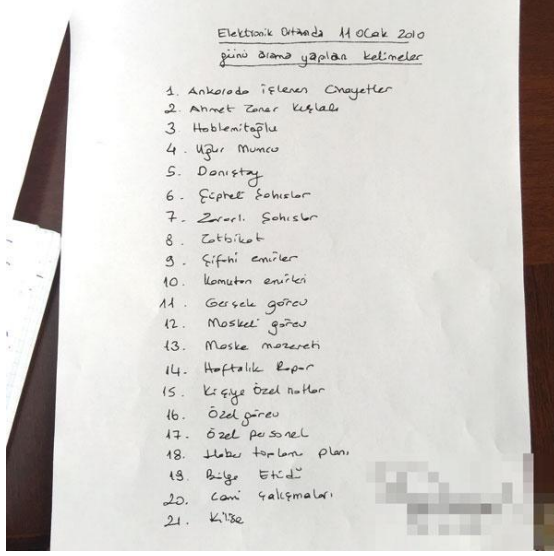 Elektronik Ortamda 11 Ocak 2010
günü arama yapılan kelimeler
1. Ankarada işlenen Cinayetler
2. Ahmet Taner Kışlalı
3. Hablemitoğlu
4. Uğur Mumcu
5. Danıştay
6. Şüpheli Şahıslar
7. Zararlı Şahıslar
8. Tatbikat
9. Şifahi emirler
10. Komutan emirleri
11. Gerçek görev
12. Maskeli görev
13. Maske mazereti
14. Haftalık Rapor
15. Kişiye Özel notlar
16. Özel görev
17. Özel personel
18. Haber toplama planı
19. Bölge Etüdü
20. Cami Çalışmaları
21. Kilise